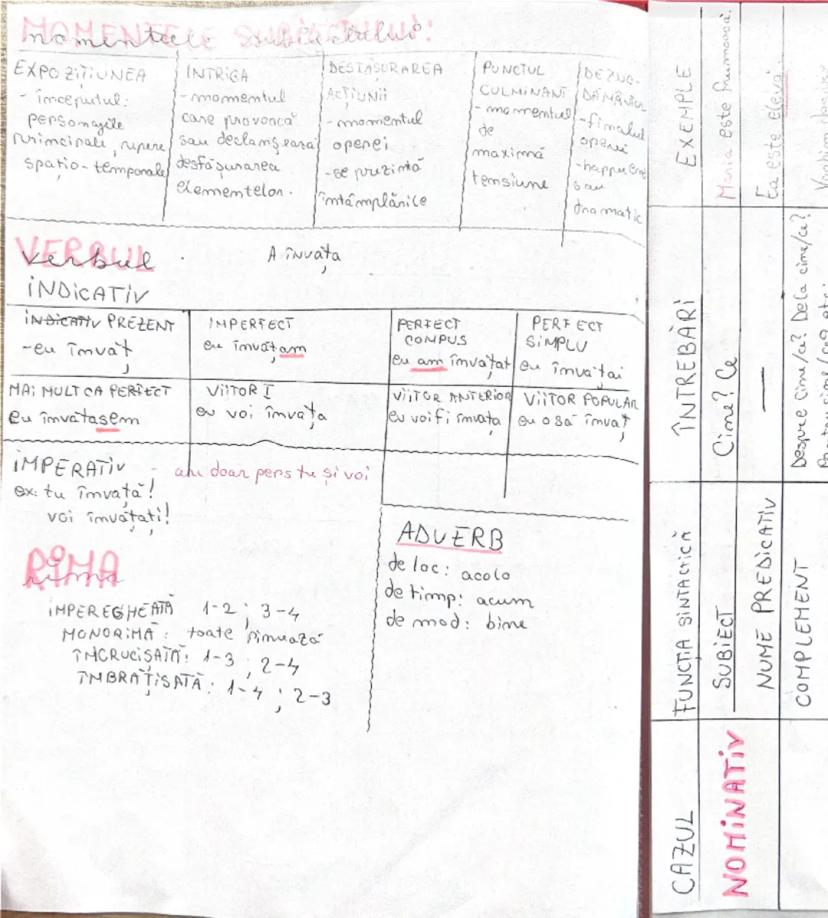 MOMENTELE SUBIECTULUI:
momentele subiectului
EXPOZIȚIUNEA
- începutul:
personajele
principale, repere
spațio-temporale
INTRIGA
-momentul
care provoacă
sau declanșează
desfășurarea
elementelor.
DESFĂȘURAREA
ACȚIUNII
-momentul
operei
-se prezintă
întâmplările
PUNCTUL
CULMINANT
-momentul
de
maximă
tensiune
DEZNO-
DĂMÂNTUL
-finalul
operei
-happy end
sau
dramatic
VERBUL
verbul
A învăța
INDICATIV
INDICATIV PREZENT
-eu învăț
IMPERFECT
eu învățam
PERFECT
COMPUS
eu am învățat
PERFECT
SIMPLU
eu învățai
MAI MULT CA PERFECT
eu învățasem
VIITOR I
eu voi învăța
VIITOR ANTERIOR
eu voi fi învăța
VIITOR POPULAR
eu o să învăț
IMPERATIV - are doar pers tu și voi
ex: tu învață!
voi învățați!
RIMA
rima
IMPERECHEATĂ 1-2 ; 3-4
MONORIMĂ: toate rimează
ÎNCRUCIȘATĂ: 1-3 ; 2-4
ÎMBRĂȚIȘATĂ: 1-4 ; 2-3
ADVERB
de loc: acolo
de timp: acum
de mod: bine
CAZUL
FUNCȚIA SINTACTICĂ
ÎNTREBĂRI
EXEMPLE
NOMINATIV
SUBIECT
Cine? Ce
Maria este frumoasă.
NUME PREDICATIV
—
Ea este elevă.
COMPLEMENT
Despre cine/ce? De la cine/ce?